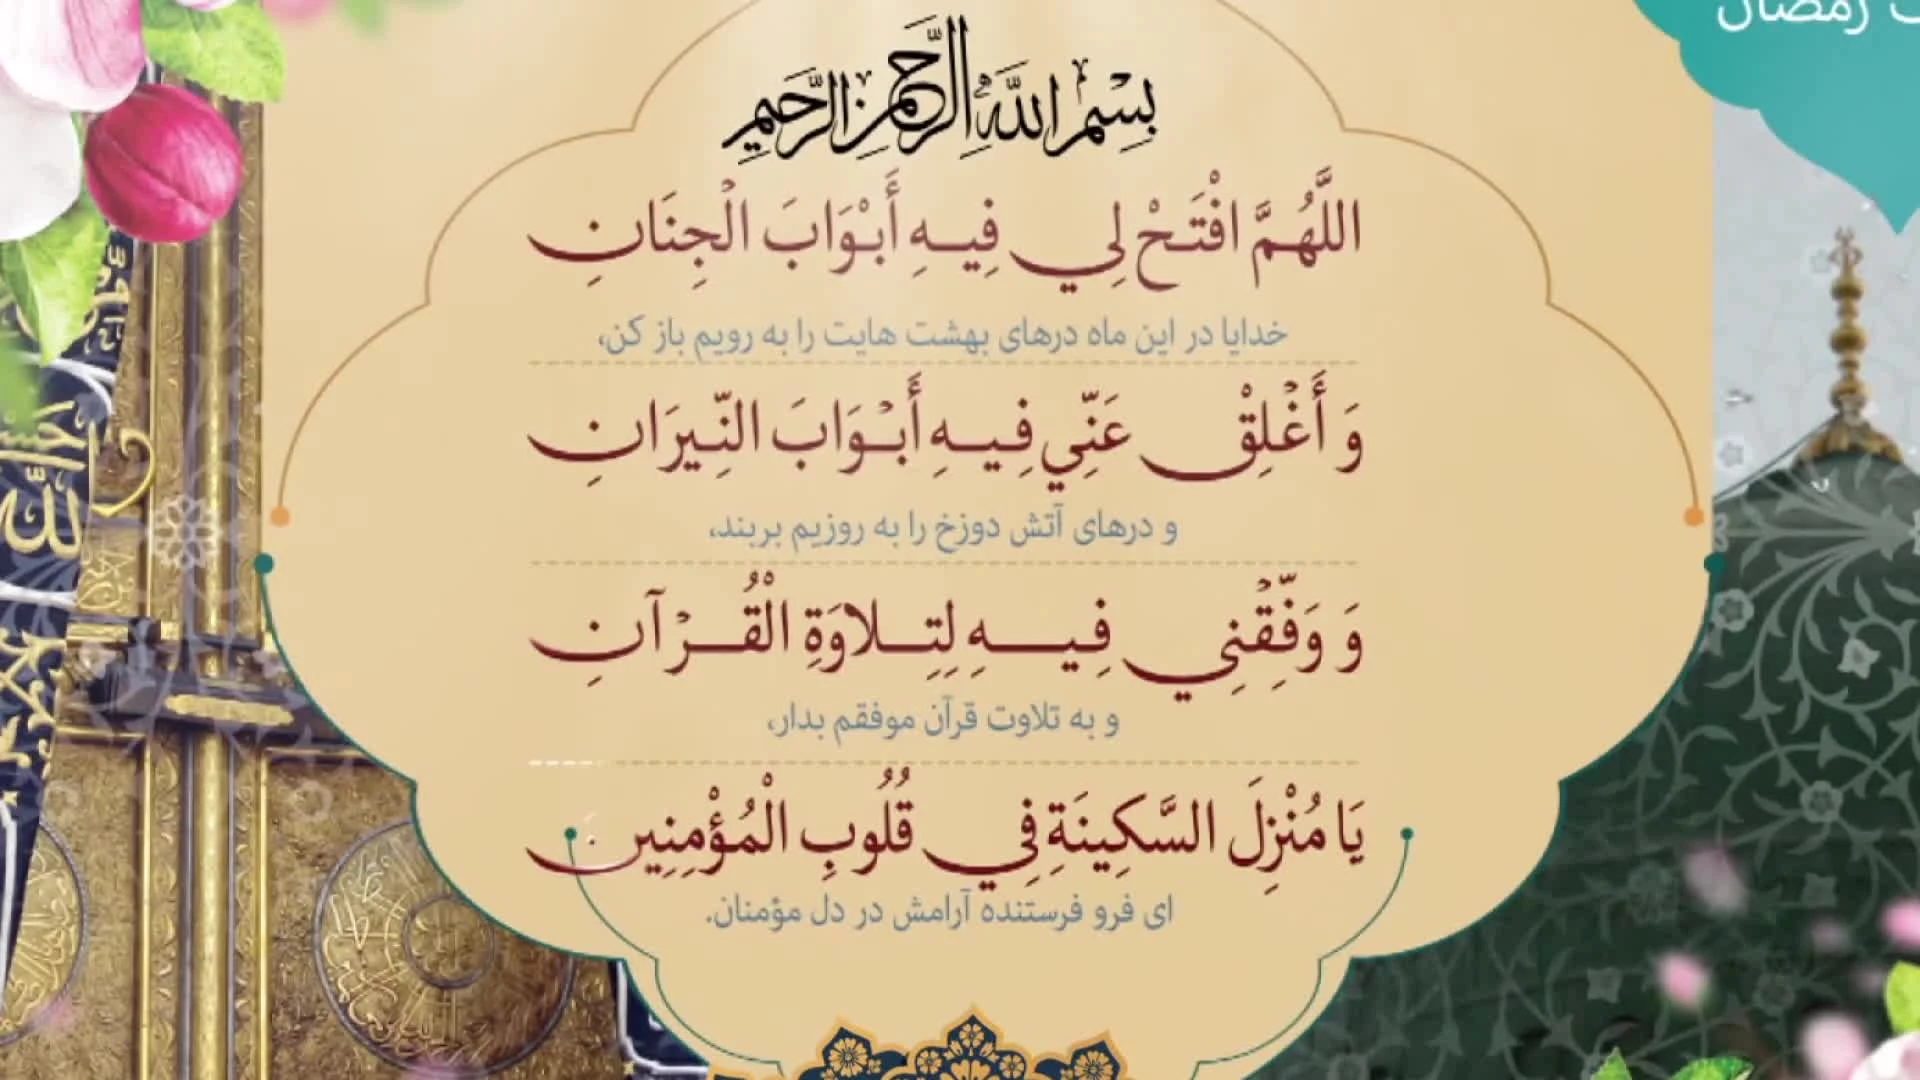 رمضان
بِسْمِ اللَّهِ الرَّحْمَنِ الرَّحِيمِ
اللَّهُمَّ افْتَحْ لِي فِيهِ أَبْوَابَ الْجِنَانِ
خدایا در این ماه درهای بهشت هایت را به رویم باز کن،
وَ أَغْلِقْ عَنِّي فِيهِ أَبْوَابَ النِّيرَانِ
و درهای آتش دوزخ را به روزیم بربند،
وَ وَفِّقْنِي فِيهِ لِتِلاوَةِ الْقُرْآنِ
و به تلاوت قرآن موفقم بدار،
يَا مُنْزِلَ السَّكِينَةِ فِي قُلُوبِ الْمُؤْمِنِينَ
ای فرو فرستنده آرامش در دل مؤمنان.